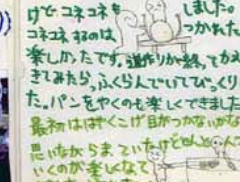 けどコネコネも しました。
コネコネするのは つかれた
楽しかったです。道作りが終って かえ
きてみたら、ふくらんでいてびっくり
た。パンをやくのも楽しくできました
最初ははやくこげ目がつかないかな
思いながらまっていたけどどんどん
いくのが楽しなて